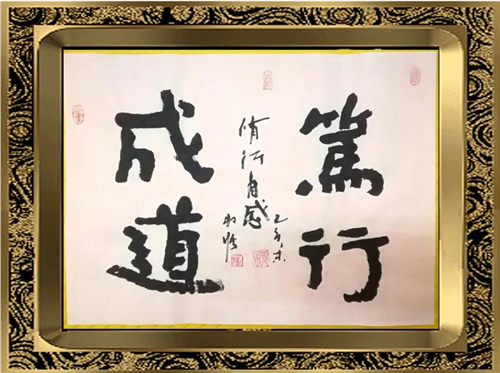 篤行
成道
修行自感